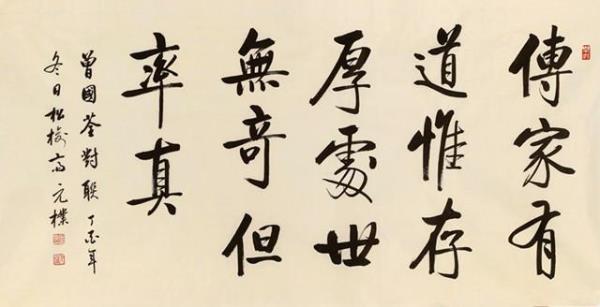 傳家有
道惟存
厚處世
無奇但
率真
曾國荃對聯 丁酉年
冬日松 高元樸